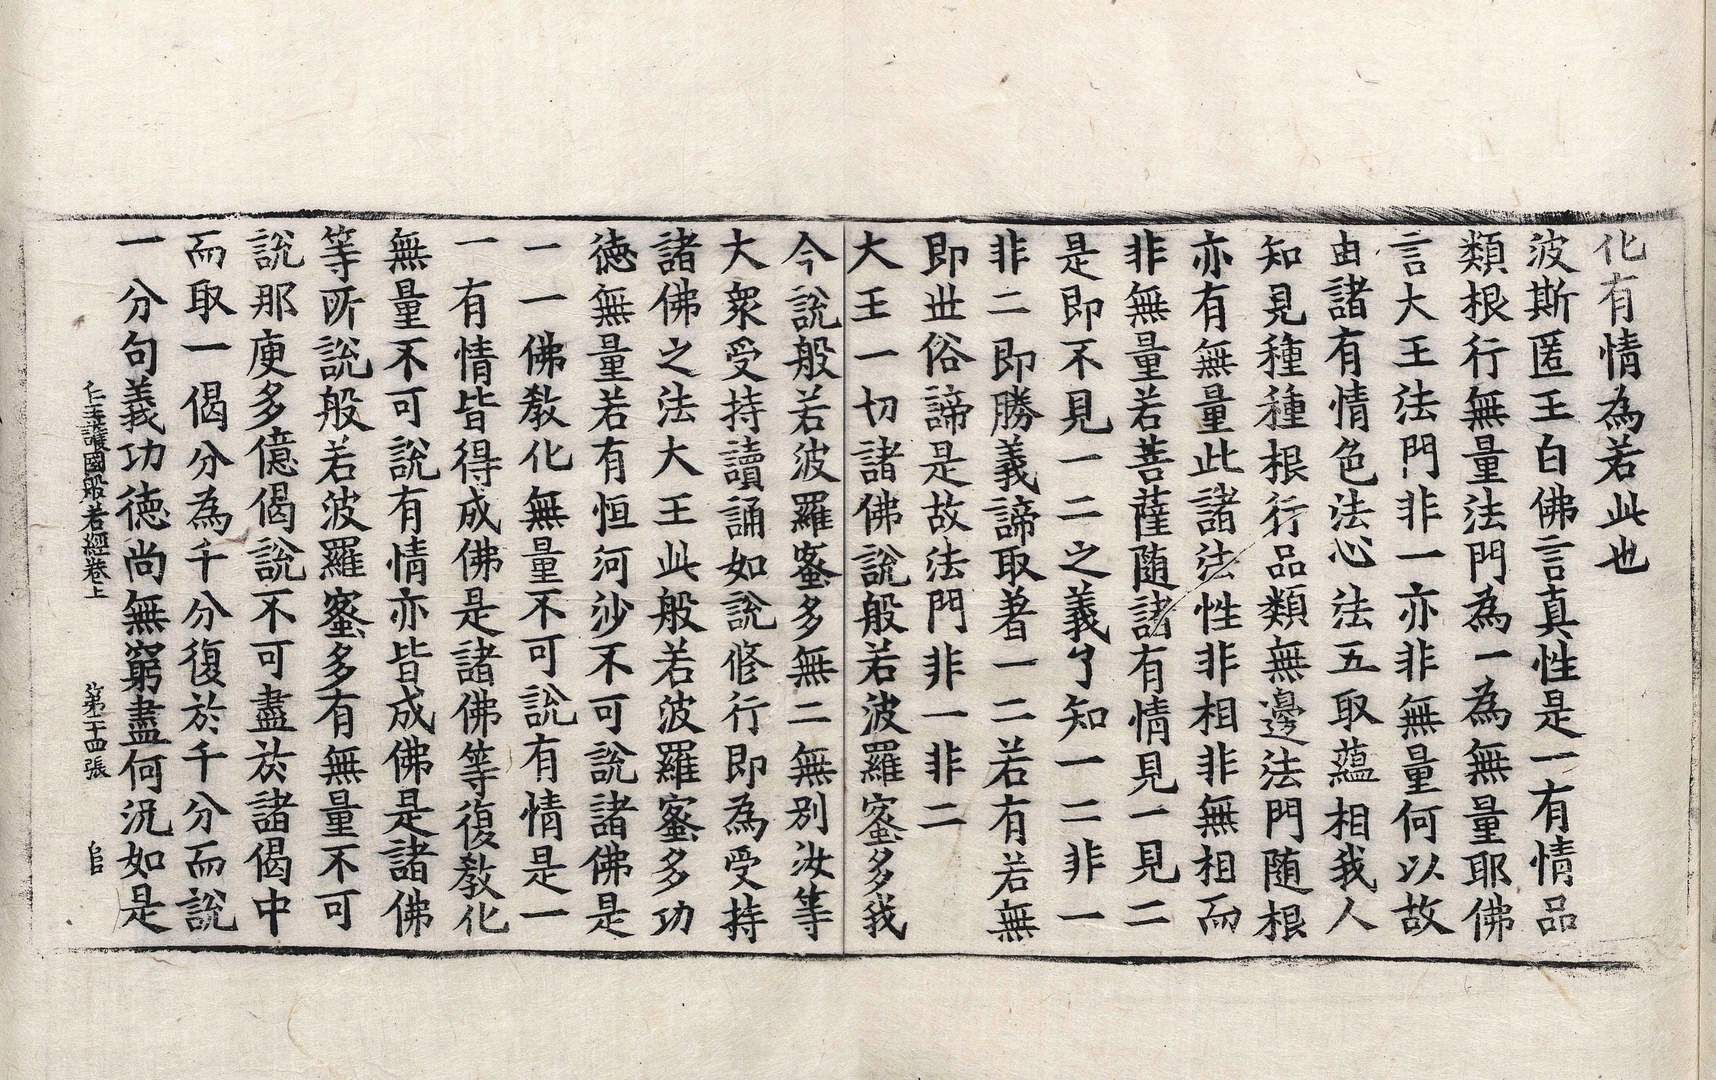 化有情為若此也
波斯匿王白佛言真性是一有情品
類根行無量法門為一為無量耶佛
言大王法門非一亦非無量何以故
由諸有情色法心法五取蘊相我人
知見種種根行品類無邊法門随根
亦有無量此諸法性非相非無相而
非無量若菩薩随諸有情見一見二
是即不見一二之義了知一二非一
非二即勝義諦取著一二若有若無
即世俗諦是故法門非一非二
大王一切諸佛說般若波羅蜜多我
今說般若波羅蜜多無二無別汝等
大衆受持讀誦如說修行即為受持
諸佛之法大王此般若波羅蜜多功
徳無量若有恒河沙不可說諸佛是
一一佛教化無量不可說有情是一
一有情皆得成佛是諸佛等復教化
無量不可說有情亦皆成佛是諸佛
等所說般若波羅蜜多有無量不可
說那庾多億偈說不可盡於諸偈中
而取一偈分為千分復於千分而說
一分句義功徳尚無窮盡何況如是
仁王護國般若經卷上 第二十四張